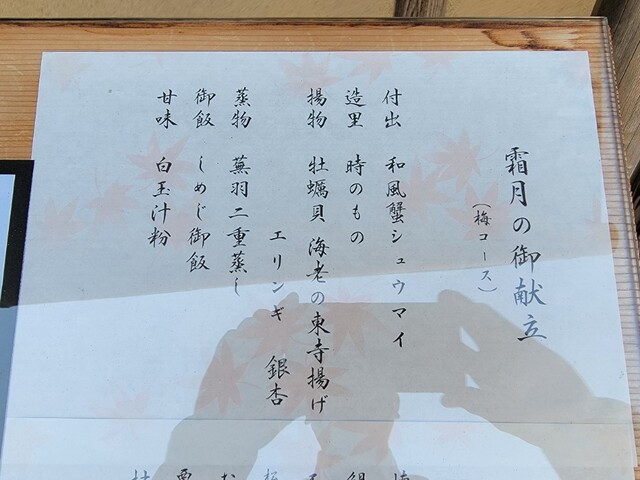 霜月の御献立
（梅コース）
付出 和風蟹シュウマイ
造里 時のもの
揚物 牡蠣貝 海老の東寺揚げ
エリンギ 銀杏
蒸物 蕪羽二重蒸し
御飯 しめじ御飯
甘味 白玉汁粉